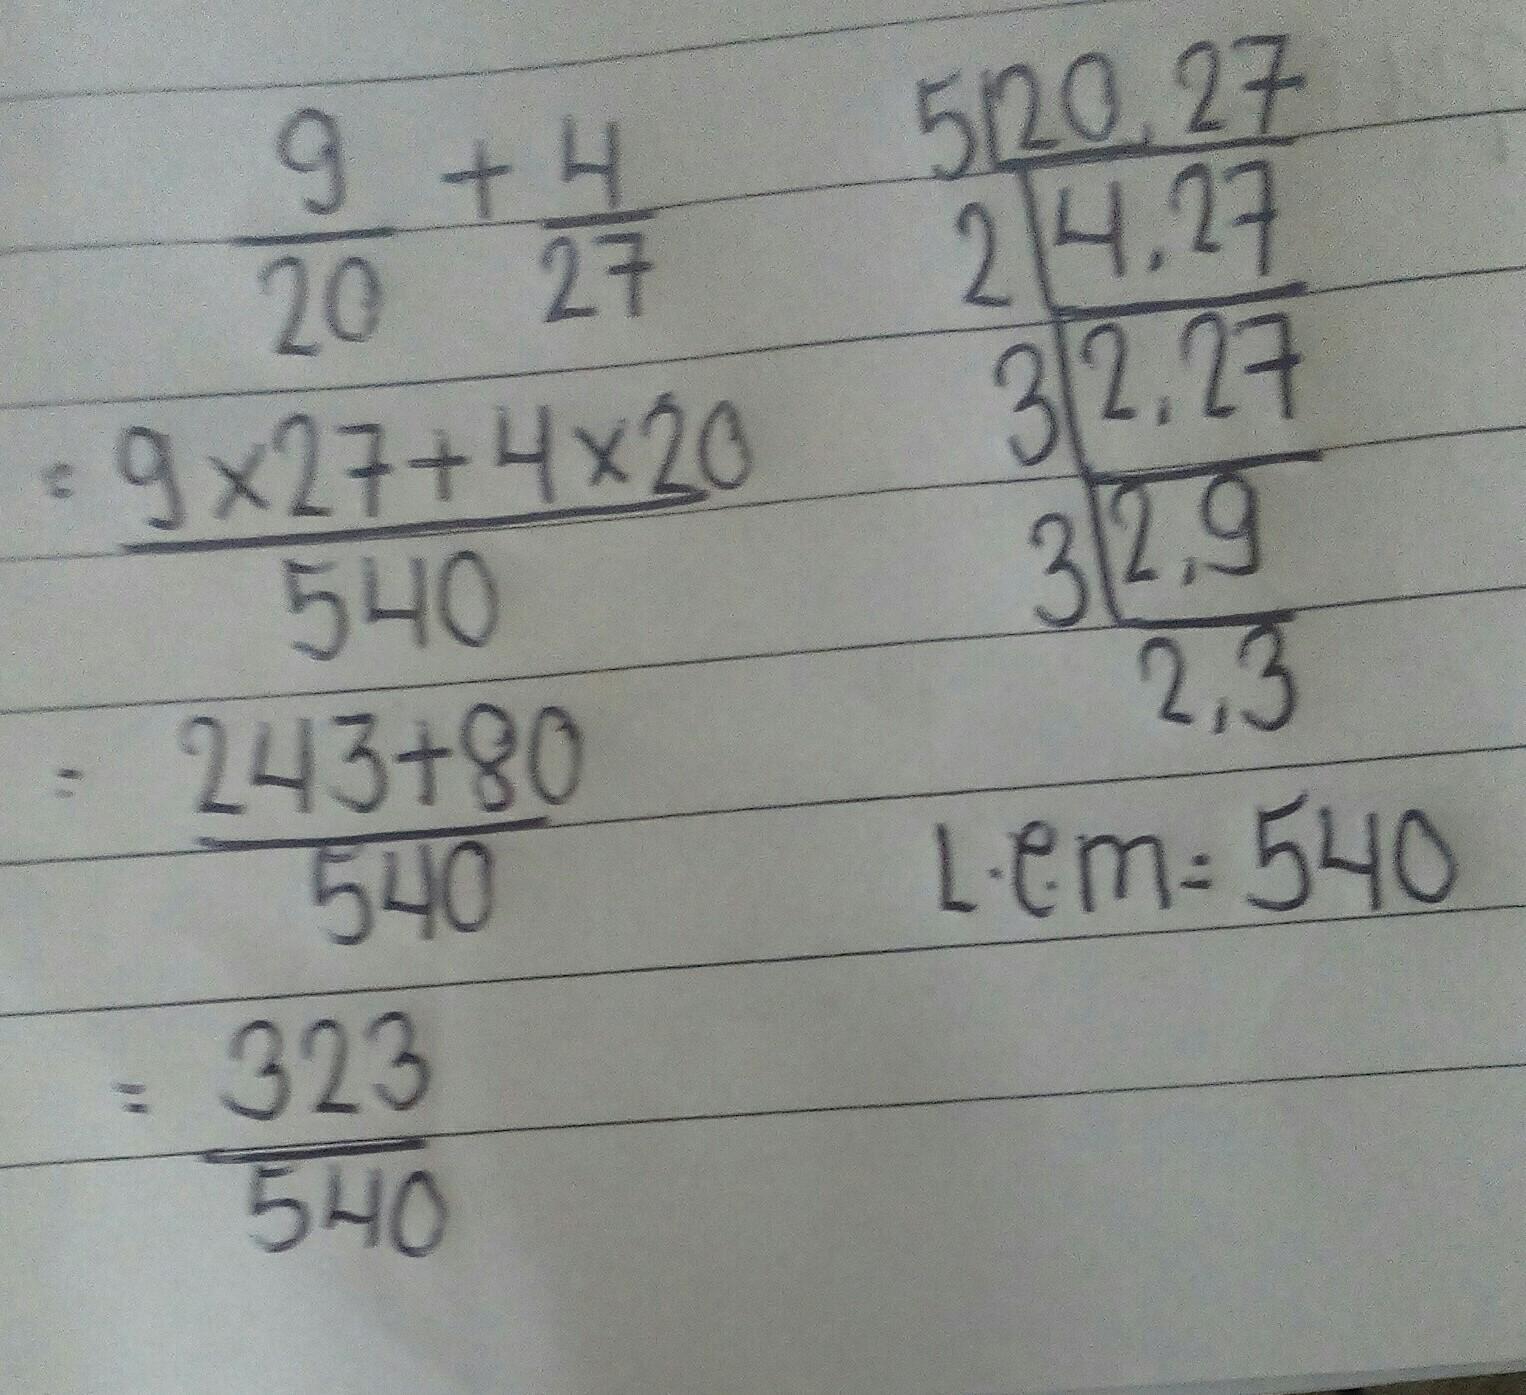 9/20 + 4/27
= 9×27+4×20/540
= 243+80/540
= 323/540
5|20,27
2|4,27
3|2,27
3|2,9
2,3
L.c.m=540